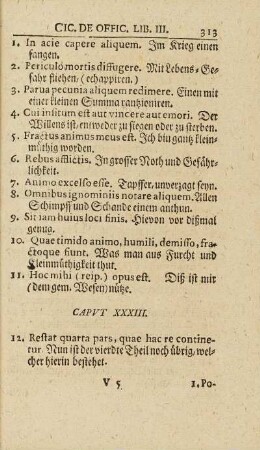 CIC. DE OFFIC. LIB. III. 313
1. In acie capere aliquem. Im Krieg einen
fangen.
2. Periculo mortis diffugere. Mit Lebens-Ge-
fahr fliehen/ (echappiren.)
3. Parua pecunia aliquem redimere. Einen mit
einer kleinen Summa rantzioniren.
4. Cui insitum est aut vincere aut emori. Der
Willens ist/ entweder zu siegen oder zu sterben.
5. Fractus animus meus est. Ich bin gantz klein-
müthig worden.
6. Rebus afflictis. In grosser Noth und Gefähr-
lichkeit.
7. Animo excelso esse. Tapffer/ unverzagt seyn.
8. Omnibus ignominiis notare aliquem. Allen
Schimpff und Schande einem anthun.
9. Sit iam huius loci finis. Hievon vor dißmal
genug.
10. Quae timido animo, humili, demisso, fra-
ctoque fiunt. Was man aus Furcht und
Kleinmüthigkeit thut.
11. Hoc mihi (reip.) opus est. Diß ist mir
(dem gem. Wesen) nütze.
CAPVT XXXIII.
12. Restat quarta pars, quae hac re contine-
tur. Nun ist der vierdte Theil noch übrig/ wel-
cher hierin bestehet.
V 5 1. Po-